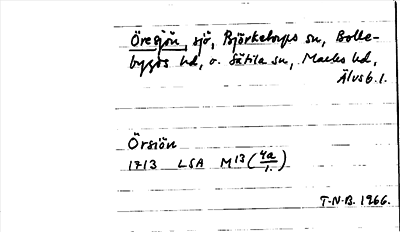 Öresjön, sjö, Björketorps sn, Bolle-
bygds hd, o. Sätila sn, Marks hd,
Älvsb. l.
Örsiön
1713 LSA M13 (4a/1.)
T.N.B. 1966.